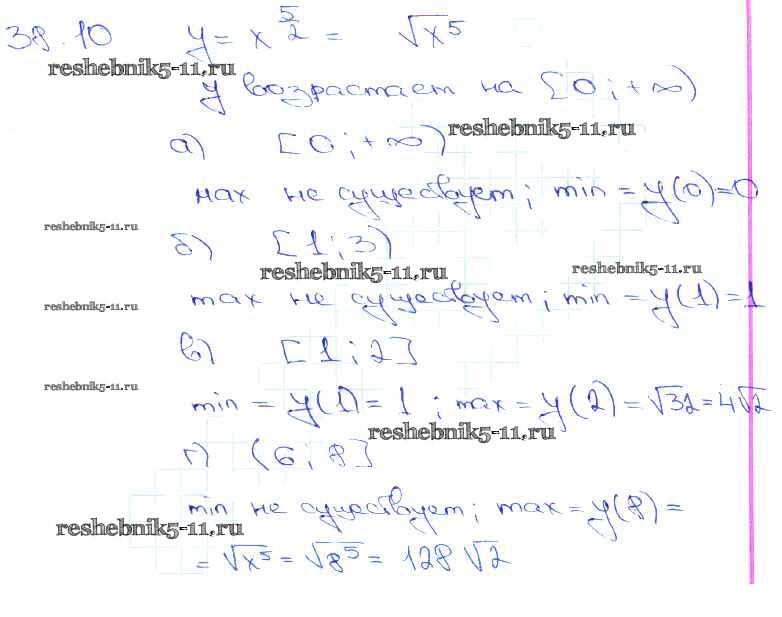 38.10 y = x^(5/2) = √x⁵
reshebnik5-11.ru
y возрастает на [0; +∞)
reshebnik5-11.ru
а) [0; +∞)
мах не существует; min = y(0) = 0
reshebnik5-11.ru
б) [1; 3)
reshebnik5-11.ru reshebnik5-11.ru
max не существует; min = y(1) = 1
reshebnik5-11.ru
в) [1; 2]
reshebnik5-11.ru
min = y(1) = 1; max = y(2) = √32 = 4√2
reshebnik5-11.ru
г) (6; 8]
min не существует; max = y(8) =
reshebnik5-11.ru
= √x⁵ = √8⁵ = 128√2